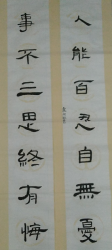 人能百忍自無憂
事不三思終有悔